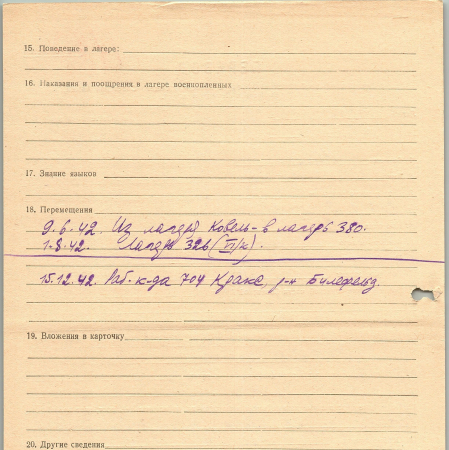 15. Поведение в лагере:
16. Наказания и поощрения в лагере военнопленных
17. Знание языков
18. Перемещения
9.6.42. Из лагеря Ковель - в лагерь 380.
1.8.42. Лагерь 326 (VI/к).
15.12.42. Раб. к-да 704 Краке, р-н Билефельд.
19. Вложения в карточку
20. Другие сведения